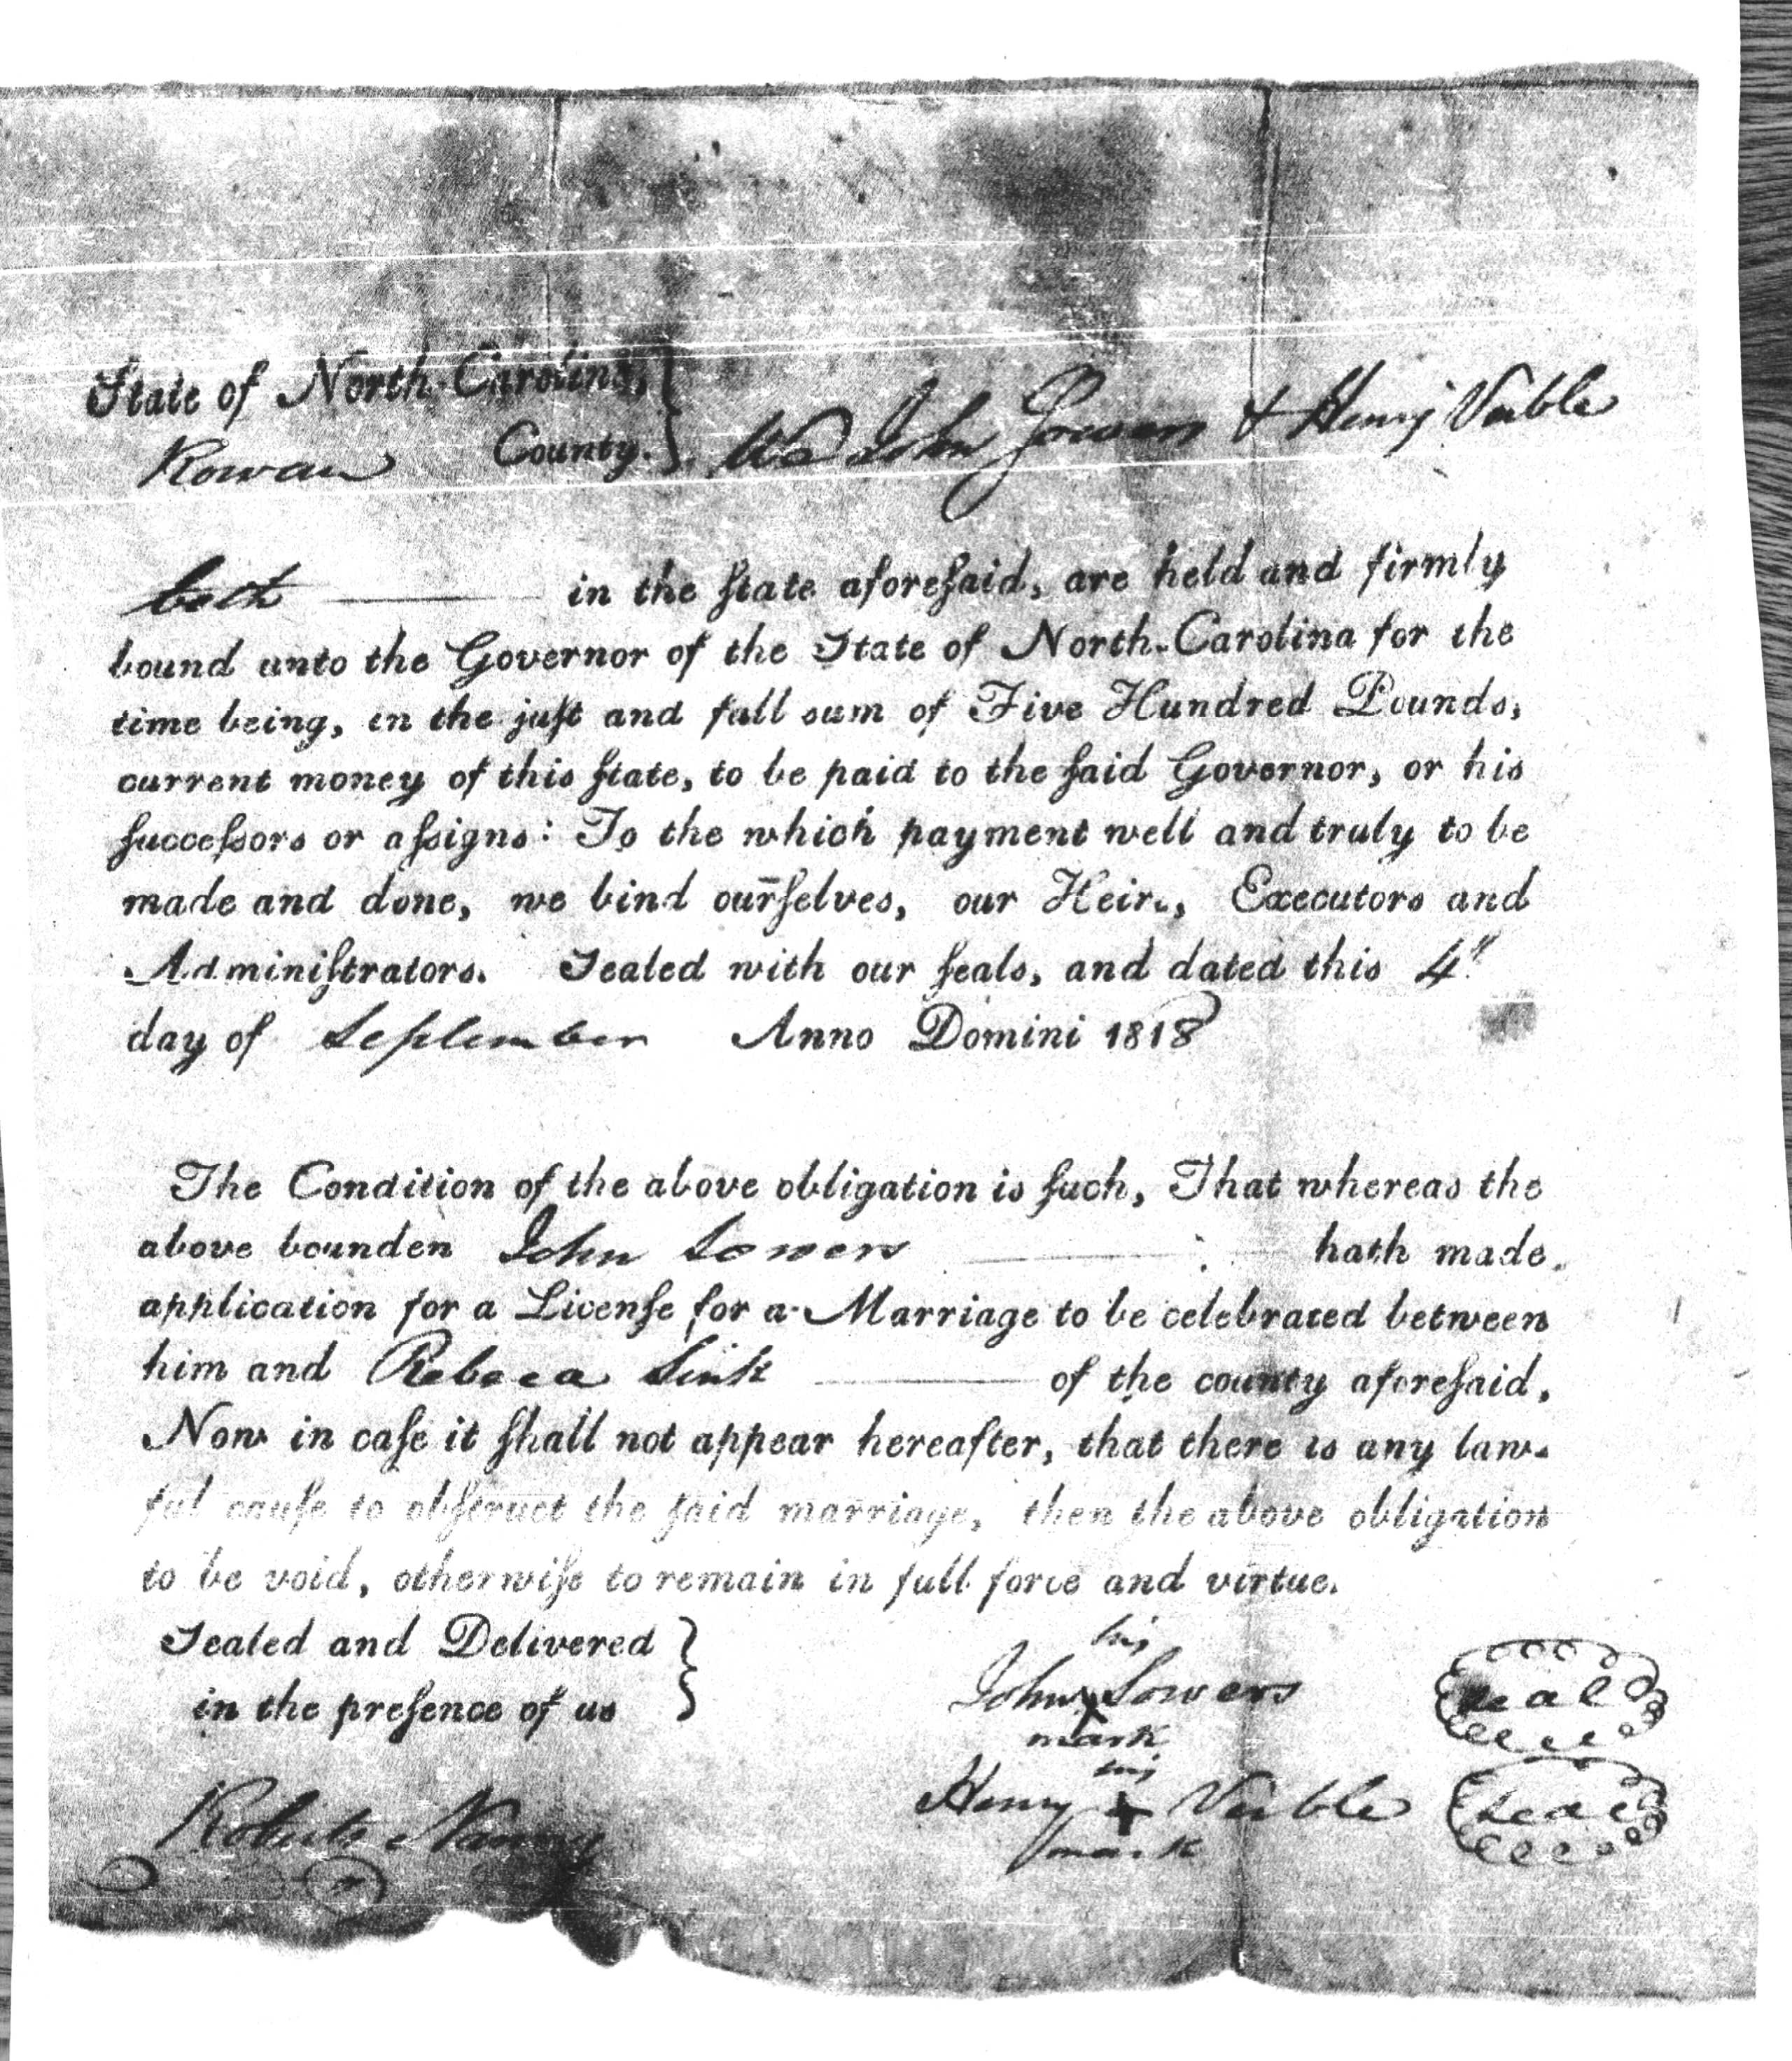 State of North-Carolina,
Rowan County. } We John Sowers & Henry Vieble
both in the ſtate aforeſaid, are held and firmly
bound unto the Governor of the State of North-Carolina for the
time being, in the juſt and full sum of Five Hundred Pounds,
current money of this ſtate, to be paid to the ſaid Governor, or his
ſucceſsors or aſsigns: To the which payment well and truly to be
made and done, we bind ourſelves, our Heirs, Executors and
Adminiſtrators. Sealed with our ſeals, and dated this 4th
day of September Anno Domini 1818
The Condition of the above obligation is ſuch, That whereas the
above bounden John Sowers hath made
application for a Licenſe for a Marriage to be celebrated between
him and Rebeca Sink of the county aforeſaid,
Now in caſe it ſhall not appear hereafter, that there is any law-
ful cauſe to obſtruct the ſaid marriage, then the above obligation
to be void, otherwiſe to remain in full force and virtue.
Sealed and Delivered }
in the preſence of us
his
John x Sowers seal
mark
his
Henry + Vieble seal
mark
Roberts Nanny